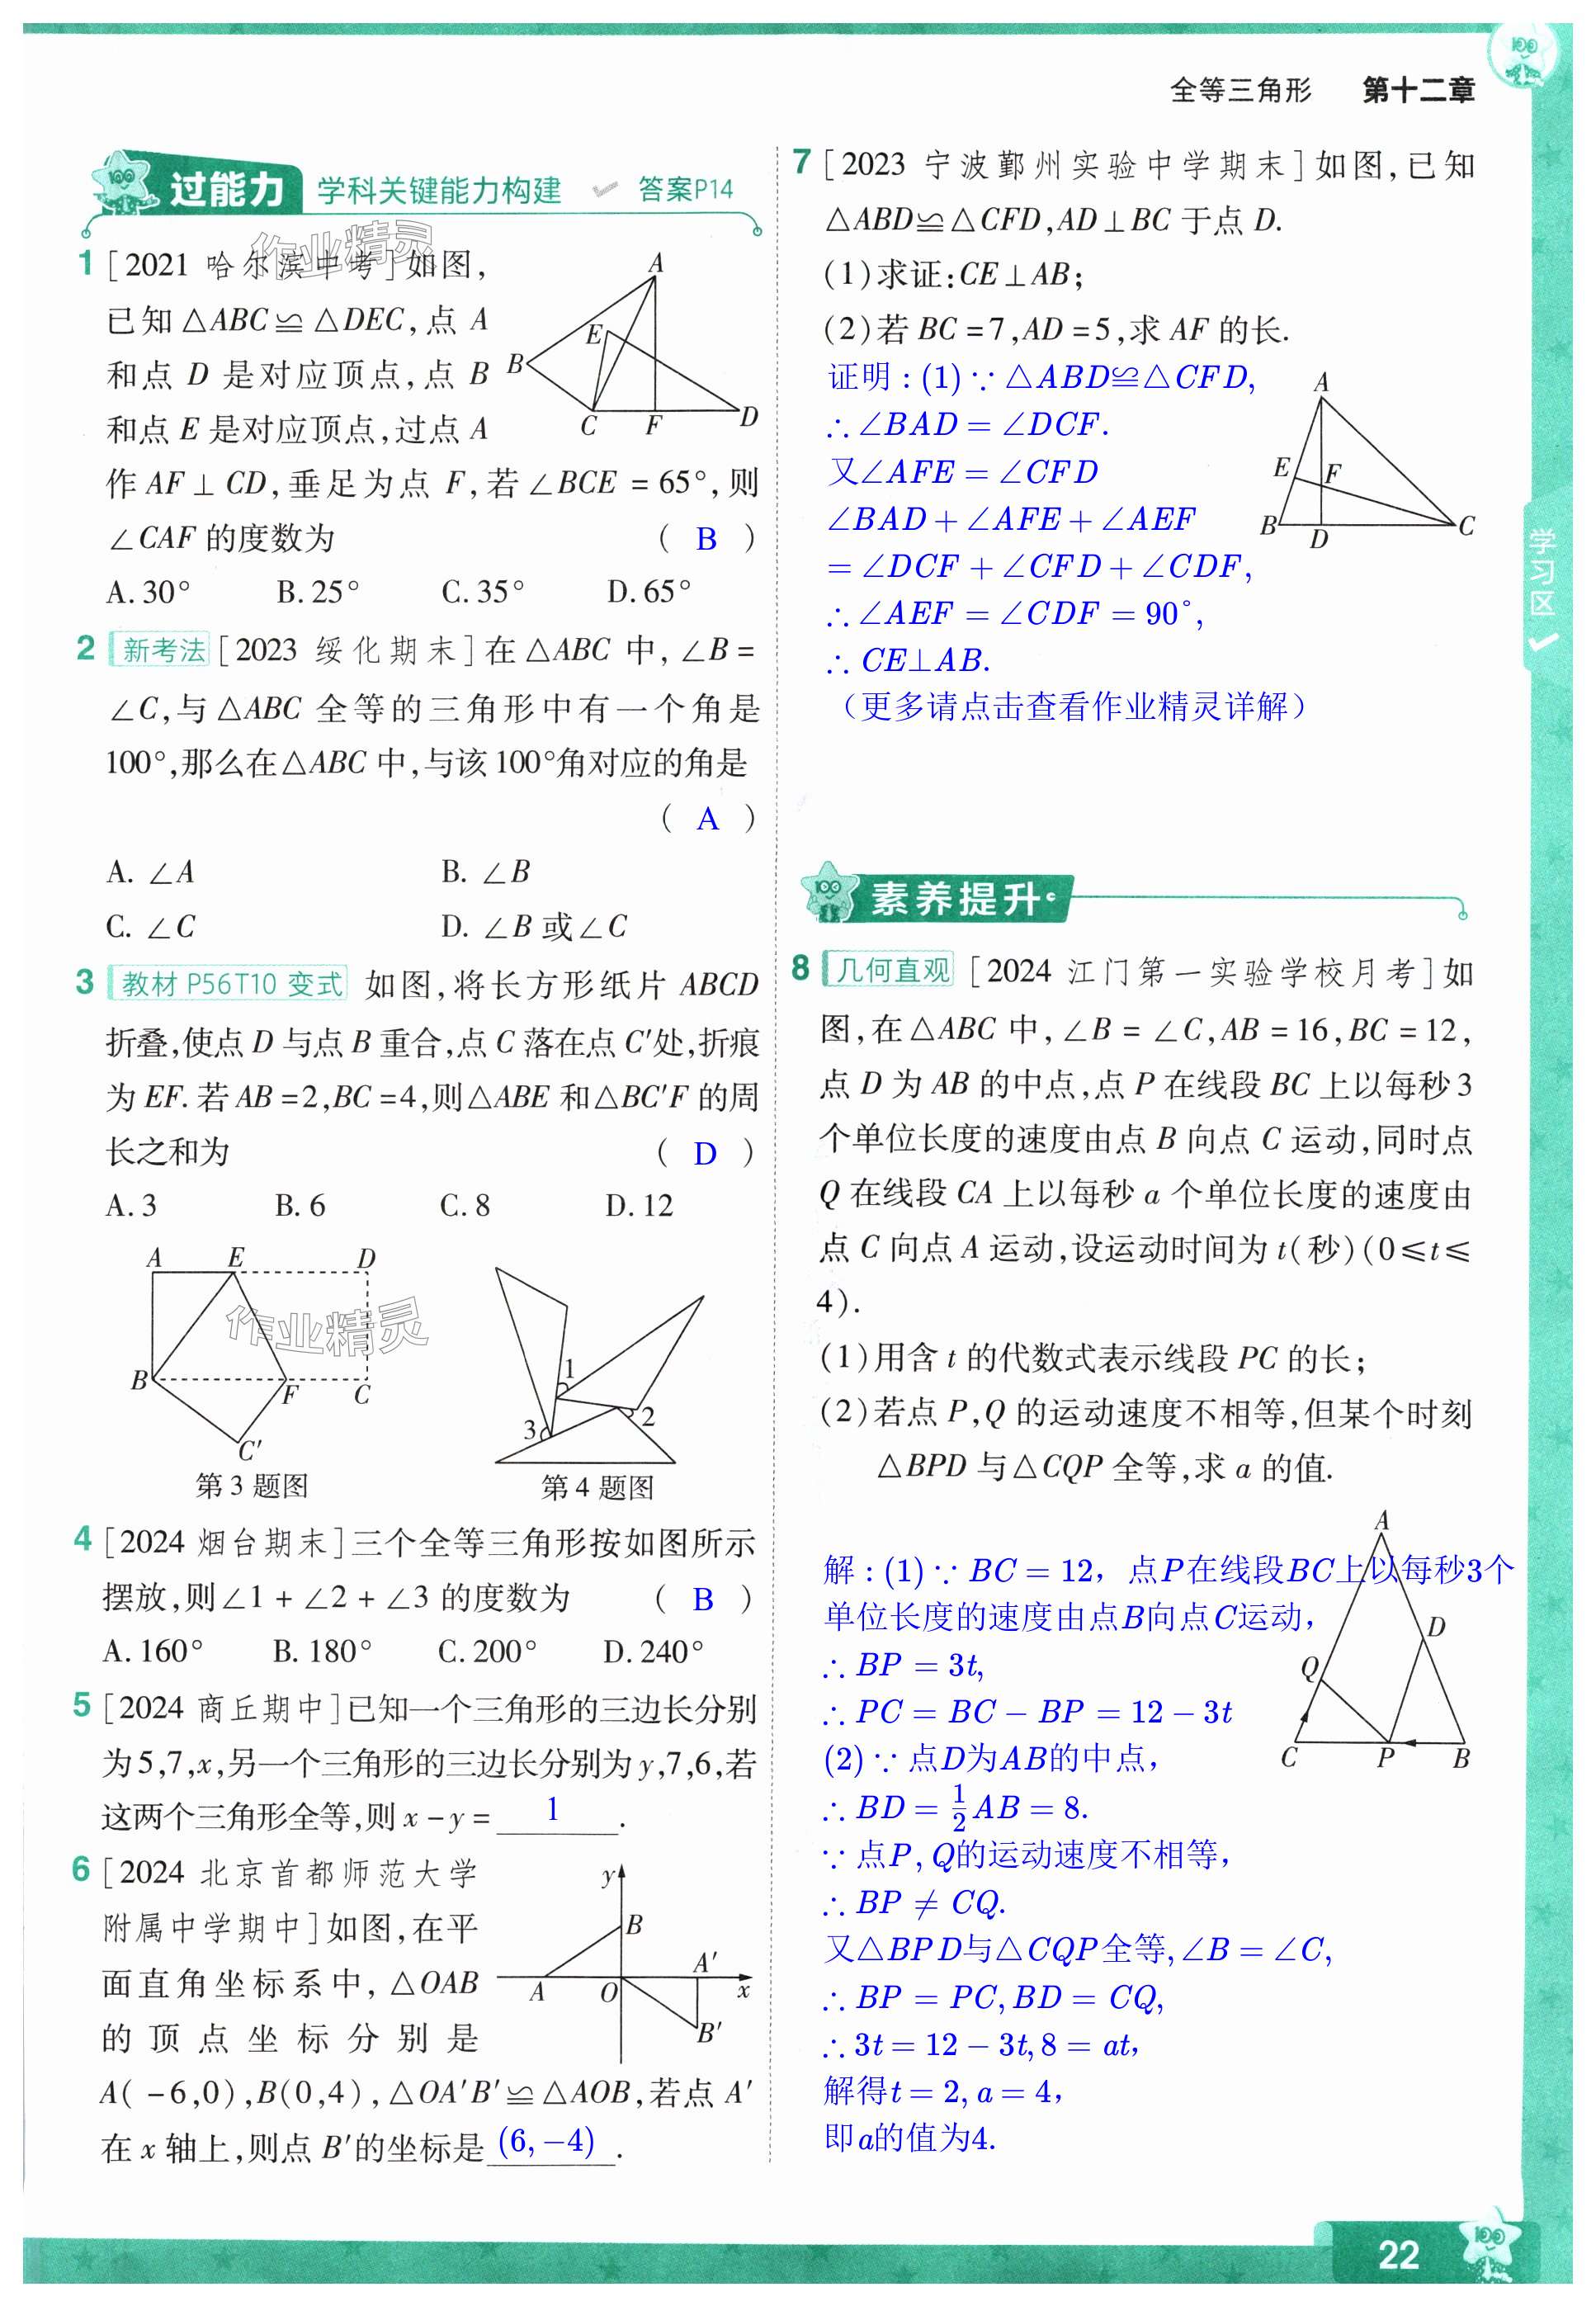 全等三角形 第十二章
过能力 学科关键能力构建 答案P14
作业精灵
1 [2021 哈尔滨中考]如图,
已知△ABC≌△DEC,点 A
和点 D 是对应顶点,点 B
和点 E 是对应顶点,过点 A
作 AF⊥CD,垂足为点 F,若∠BCE = 65°,则
∠CAF 的度数为 ( B )
A.30° B.25° C.35° D.65°
A
E
B
C F D
2 新考法 [2023 绥化期末]在△ABC 中,∠B =
∠C,与△ABC 全等的三角形中有一个角是
100°,那么在△ABC 中,与该100°角对应的角是
( A )
A. ∠A B. ∠B
C. ∠C D. ∠B 或∠C
3 教材 P56T10 变式 如图,将长方形纸片 ABCD
折叠,使点 D 与点 B 重合,点 C 落在点 C′处,折痕
为 EF. 若 AB =2,BC =4,则△ABE 和△BC′F 的周
长之和为 ( D )
A.3 B.6 C.8 D.12
A E D
作业精灵
B F C
C′
第 3 题图
1
2
3
第 4 题图
4 [2024 烟台期末]三个全等三角形按如图所示
摆放,则∠1 + ∠2 + ∠3 的度数为 ( B )
A.160° B.180° C.200° D.240°
5 [2024 商丘期中]已知一个三角形的三边长分别
为5,7,x,另一个三角形的三边长分别为y,7,6,若
这两个三角形全等,则 x - y = 1 .
6 [2024 北京首都师范大学
附属中学期中]如图,在平
面直角坐标系中,△OAB
的顶点坐标分别是
A( -6,0),B(0,4),△OA′B′≌△AOB,若点 A′
在 x 轴上,则点 B′的坐标是 (6,-4) .
y
B
A′
A O x
B′
7 [2023 宁波鄞州实验中学期末]如图,已知
△ABD≌△CFD,AD⊥BC 于点 D.
(1)求证:CE⊥AB;
(2)若 BC =7,AD =5,求 AF 的长.
证明：(1)∵△ABD≌△CFD,
∴∠BAD = ∠DCF.
又∠AFE = ∠CFD
∠BAD + ∠AFE + ∠AEF
= ∠DCF + ∠CFD + ∠CDF,
∴∠AEF = ∠CDF = 90°,
∴ CE⊥AB.
（更多请点击查看作业精灵详解）
A
E F
B D C
学习区
素养提升
8 几何直观 [2024 江门第一实验学校月考]如
图,在△ABC 中,∠B = ∠C,AB = 16,BC = 12,
点 D 为 AB 的中点,点 P 在线段 BC 上以每秒 3
个单位长度的速度由点 B 向点 C 运动,同时点
Q 在线段 CA 上以每秒 a 个单位长度的速度由
点 C 向点 A 运动,设运动时间为 t(秒)(0≤t≤
4).
(1)用含 t 的代数式表示线段 PC 的长;
(2)若点 P,Q 的运动速度不相等,但某个时刻
△BPD 与△CQP 全等,求 a 的值.
解：(1)∵ BC = 12，点P在线段BC上以每秒3个
单位长度的速度由点B向点C运动，
∴ BP = 3t,
∴ PC = BC − BP = 12 − 3t
(2)∵点D为AB的中点，
∴ BD = 1/2 AB = 8.
∵点P, Q的运动速度不相等，
∴ BP ≠ CQ.
又△BPD与△CQP全等,∠B = ∠C,
∴ BP = PC, BD = CQ,
∴3t = 12 − 3t, 8 = at,
解得t = 2, a = 4，
即a的值为4.
A
D
Q
C P B
22